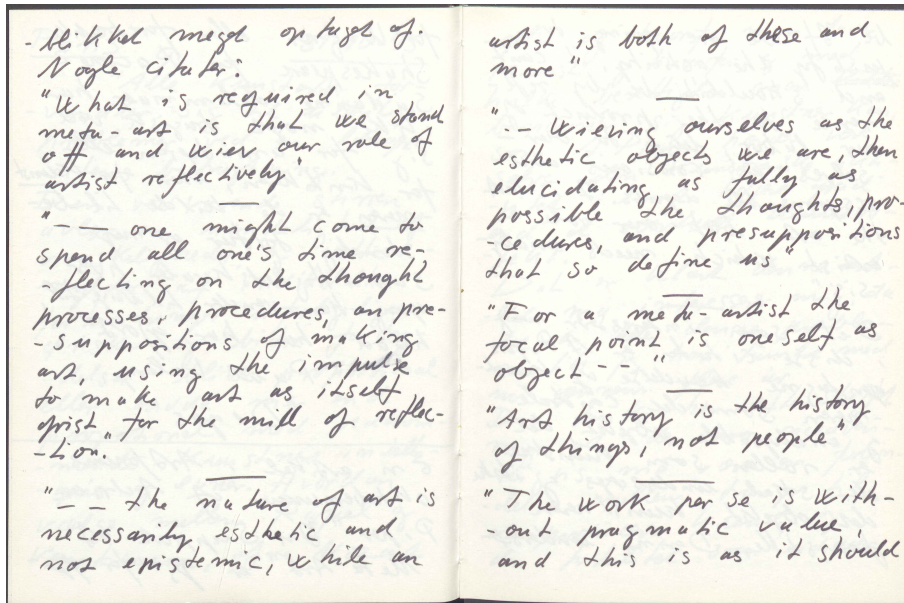 -blikket meget optaget af.
Nogle citater:
"What is required in
meta-art is that we stand
off and wiev our role of
artist reflectively"
"-- one might come to
spend all one's time re-
-flecting on the thought
processes, procedures, an pre-
-suppositions of making
art, using the impulse
to make art as itself
grist for the mill of reflec-
-tion."
"-- the nature of art is
necessarily esthetic and
not epistemic, while an
artist is both of these and
more"
"-- Wieving ourselves as the
esthetic objects we are, then
elucidating as fully as
possible the thoughts, pro-
-cedures, and presuppositions
that so define us"
"For a meta-artist the
focal point is oneself as
object --"
"Art history is the history
of things, not people"
"The work per se is with-
-out pragmatic value,
and this is as it should